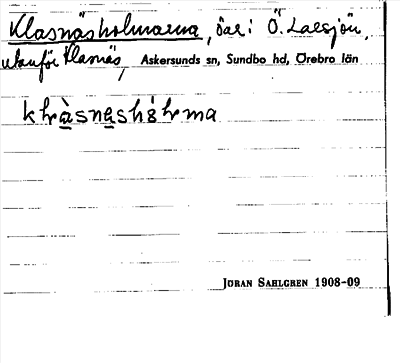 Klasnäsholmarna, öar i Ö. Laxsjön,
utanför Klasnäs, Askersunds sn, Sundbo hd, Örebro län
JÖRAN SAHLGREN 1908-09